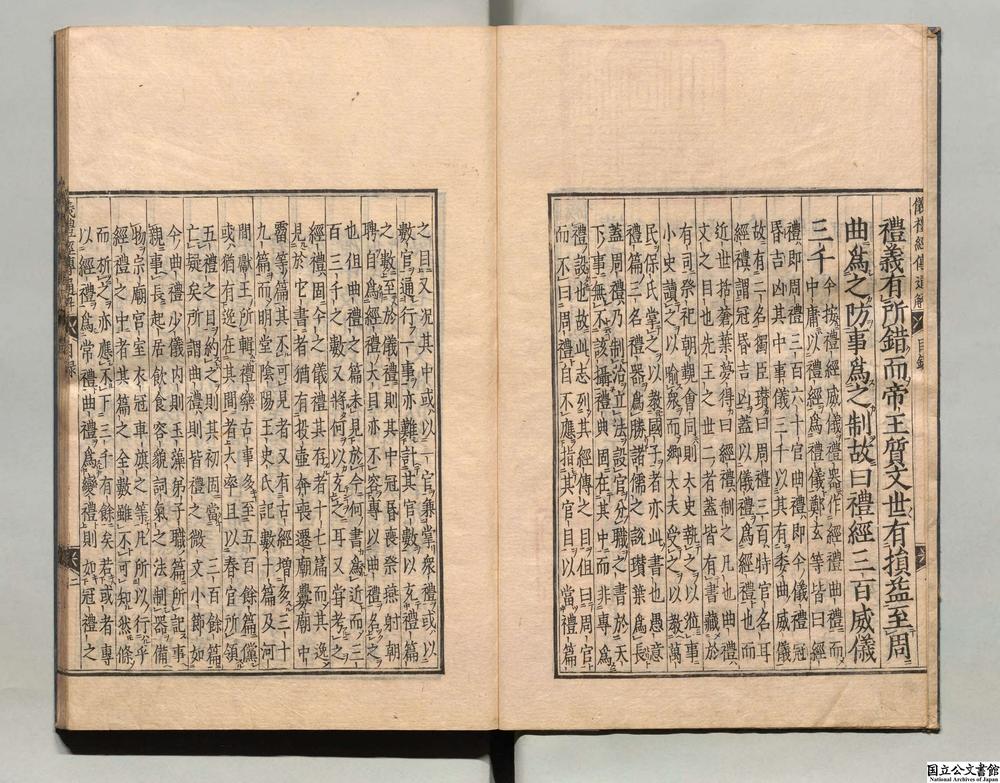 儀禮經傳通解 目録
禮義有所錯而帝王質文世有損益至周
曲爲之防事爲之制故曰禮經三百威儀
三千
今按禮經威儀禮器作經禮曲禮而
中庸以禮經爲禮儀鄭玄等皆曰經
禮即周禮三百六十官曲禮即今儀禮冠
昏吉凶其中事儀三千以其有委曲威儀
故有二名獨臣瓚曰周禮三百特官名耳
經禮謂冠昏吉凶蓋以儀禮爲經禮也而
近世括蒼葉夢得曰經禮制之凡也曲禮
文之目也先王之世二者蓋皆有書藏於
有司祭祀朝覲會同則大史執之以涖事
小史讀之以喻衆而鄉大夫受之以教萬
民保氏掌之以教國子者亦此書也愚意
禮篇三名禮器爲勝諸儒之說瓚葉爲長
蓋周禮乃制治立法設官分職之書於天
下事無不該攝禮典固在其中而非專爲
禮設也故此志列其經傳之目但曰周官
而不曰周禮自不應指其官目以當禮篇
之目又況其中或以一官兼掌衆禮或以
數官通行一事亦難計其官數以充禮篇
之數至於儀禮則其中曰冠昏喪祭燕射朝
聘自爲經禮大目亦不容專以曲禮名之
也但曲禮之篇未見於今何書爲近而三
百三千之數又將何以充之耳又嘗考之
經禮固今之儀禮其存者十七篇而其逸
見於它書者猶有投壺奔喪遷廟釁廟中
霤等篇其不可見者又有古經增多三十
九篇而明堂陰陽王史氏記數十篇及河
間獻王所輯禮樂古事多至五百餘篇儻
或猶有逸在其間者大率且以春官所領
五禮之目約之則其初固當有三百餘篇
亡疑矣所謂曲禮則皆禮之微文小節如
今曲禮少儀内則玉藻弟子職篇所記事
親事長起居飲食容貌詞氣之法制器備
物宗廟宮室衣冠車旗之等凡所以行乎
經禮之中者其篇之全數雖不可知然條
而析之亦應不下三千有餘矣若或者專
以經禮爲常禮曲禮爲變禮則如冠禮之
儀禮經傳通解 目録
二
国立公文書館
National Archives of Japan